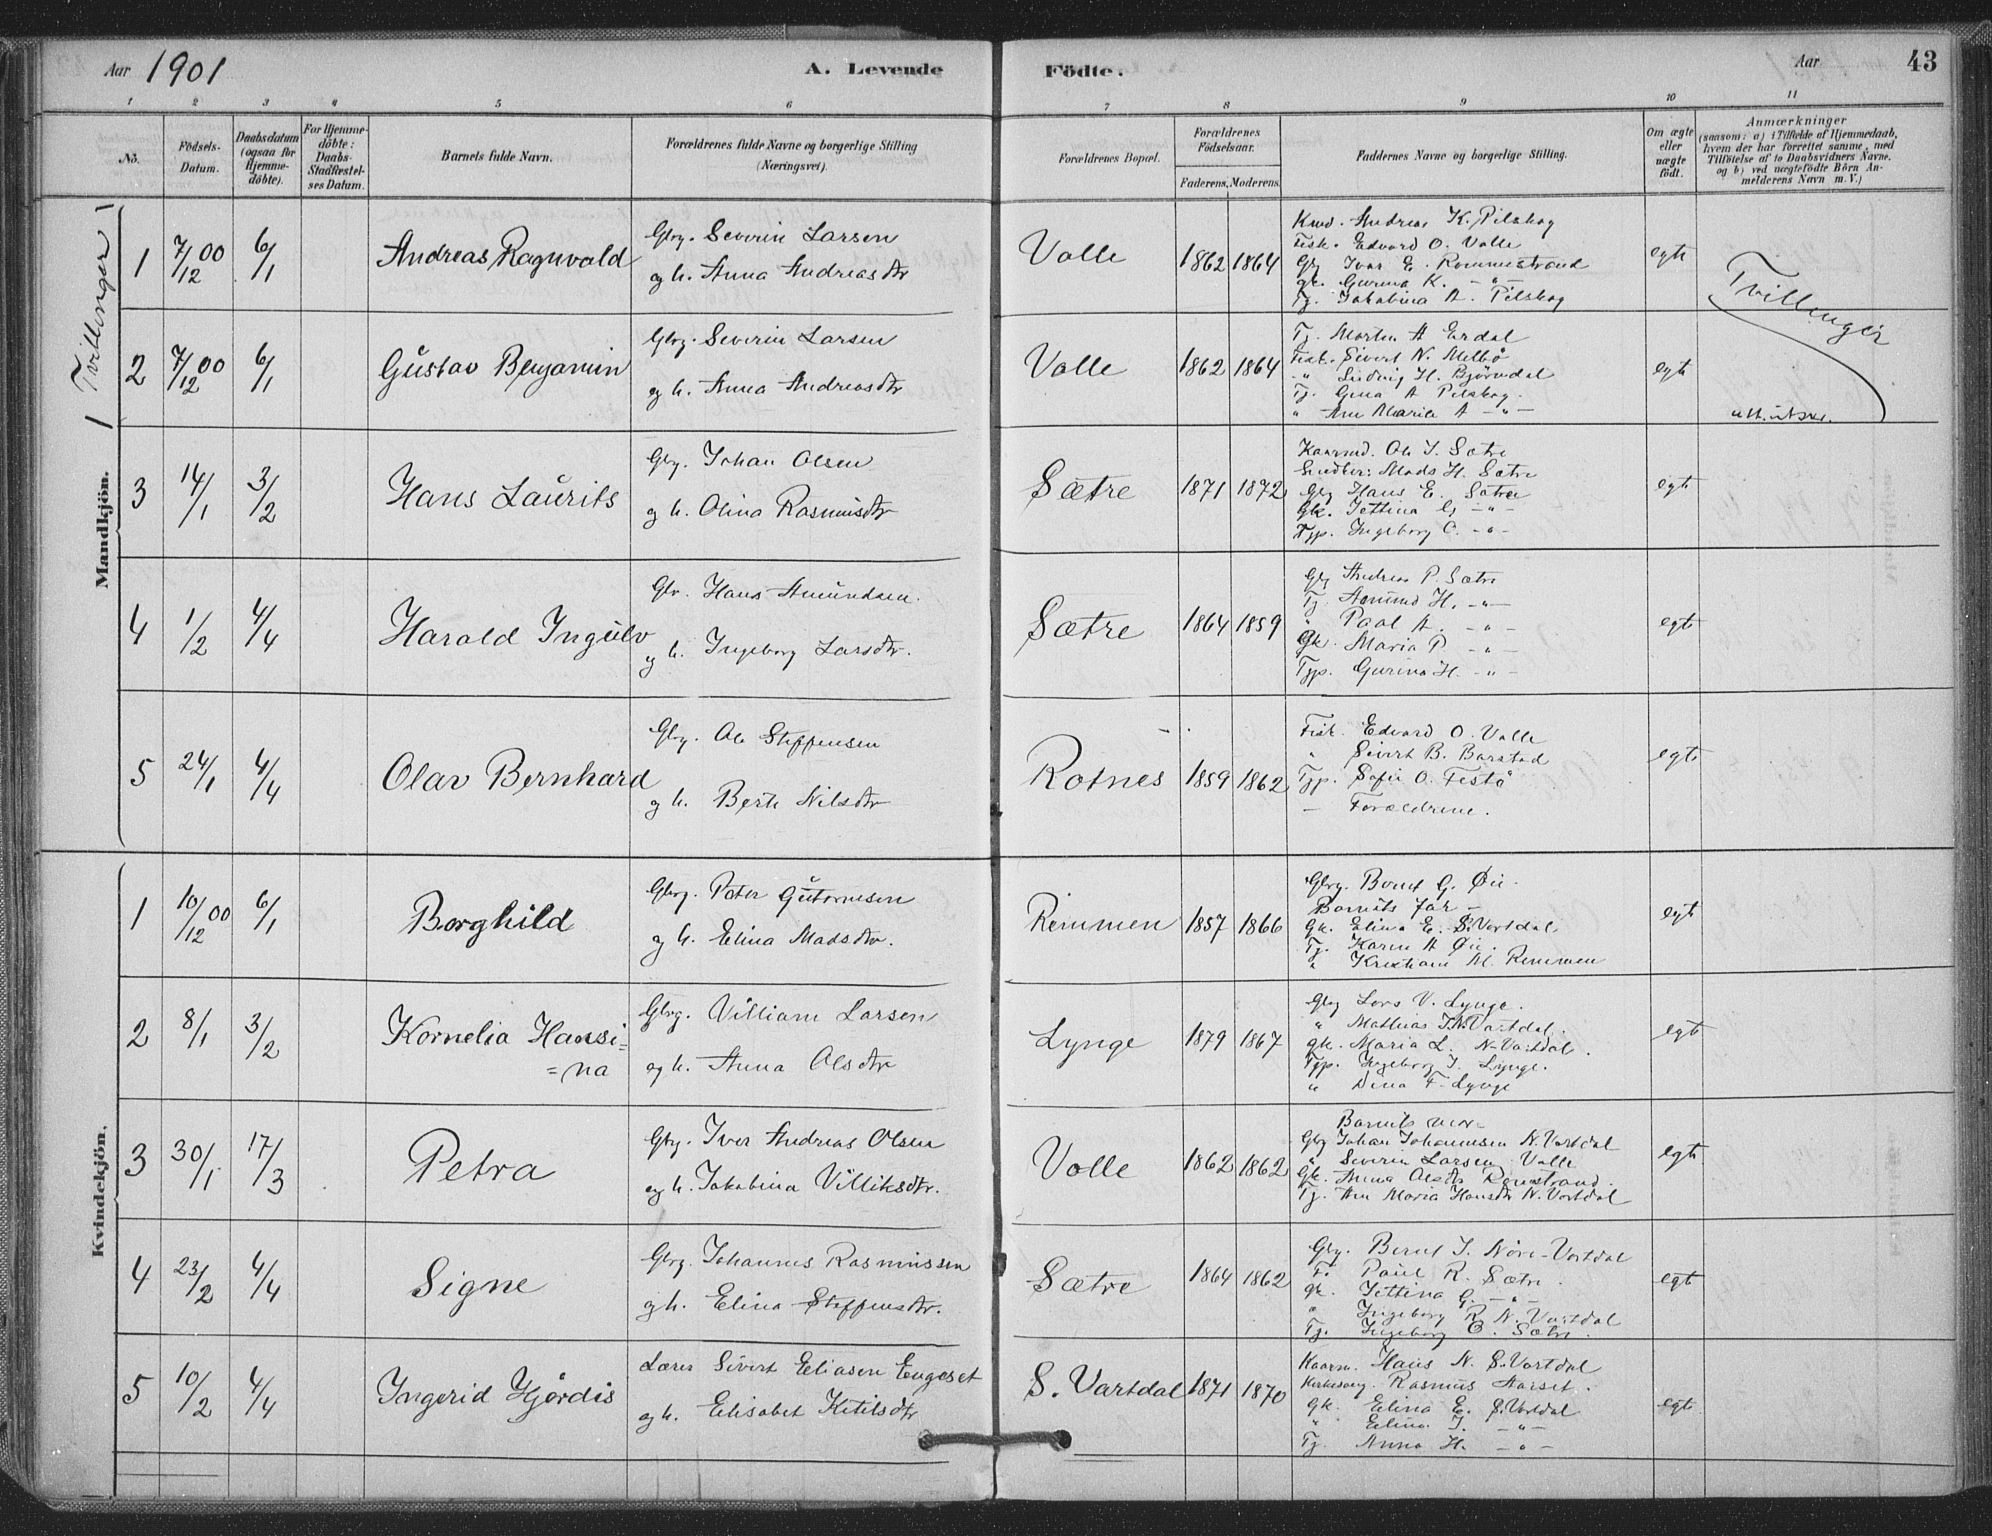 Aar 1901
A. Levende Födte.
Aar
43
1 2 3 4 5 6 7 8 9 10 11
No.
Födsels-Datum.
Daabsdatum (ogsaa for Hjemme-döbte).
For Hjemme-döbte: Daabs-Stadfæstel-ses Datum.
Barnets fulde Navn.
Forældrenes fulde Navne og borgerlige Stilling (Næringsvei).
Forældrenes Bopæl.
Forældrenes Födselsaar.
Faderens. Moderens.
Faddernes Navne og borgerlige Stilling.
Om ægte eller uægte födt.
Anmærkninger (saasom: a) i Tilfælde af Hjemmedaab, hvem der har forrettet samme, med Tilföielse af to Daabsvidners Navne, og b) ved uægtefödte Börn An-melderens Navn m. V.)
Mandkjön.
Tvillinger
1 7/12 00 6/1 Andreas Ragnvald
Gbrg. Severin Larsen
og h. Anna Andreasdtr
Valle 1862 1864
Kmd. Andreas K. Pilskog
Fisk. Edvard O. Valle
Gbr Ivar E. Rommestrand
gk. Gurina K. -"-
Tj. Jakobina A. Pilskog
egte
Tvillinger
2 7/12 00 6/1 Gustav Benjamin
Gbrg. Severin Larsen
og h. Anna Andreasdtr
Valle 1862 1864
Tj. Martin A Erdal
Fisk. Sivert N. Melbö
" Ludvig H. Björndal
Tj. Gina A Pilskog
" Ane Maria A -"-
egte
3 14/1 3/2 Hans Laurits
Gbrg. Johan Olsen
og h. Olina Rasmusdtr
Sætre 1871 1872
Kaarmd. Ole I. Sætre
Snedker: Mads H. Sætre
Gbrg Hans E. Sætre
Gk. Jettina G -"-
Typ. Ingeborg O. -"-
egte
4 1/2 4/4 Harald Ingulv
Gbr. Hans Amundsen.
og h. Ingeborg Larsdtr.
Sætre 1864 1859
Gbr Andreas P. Sætre
Tj. Aamund H. -"-
" Paal A. -"-
Gk. Maria P. -"-
Typ. Gurina H. -"-
egte
5 24/1 4/4 Olav Bernhard
Gbrg. Ole Steffensen
og h. Berte Nilsdtr
Rotnes 1859 1862
Fisk. Edvard O. Valle
" Sivert B. Barstad
Typ. Sofie O. Festö
— Forældrene.
egte
Kvindekjön.
1 10/12 00 6/1 Borghild
Gbrg. Peter Guttormsen
og h. Elina Madsdtr.
Remmen 1857 1866
Gbrg. Bernt G. Øie.
Barnets far -
Gk. Elina E. S. Vartdal.
Tj. Karen A Øie.
" Kristiane M. Remmen
egte
2 8/1 3/2 Kornelia Hansi=
=na
Gbrg. Villiam Larsen
og h. Anna Olsdtr
Lynge 1879 1867
Gbrg Lars V. Lynge.
" Mathias I. N. Vartdal.
gk. Maria L. N-Vartdal.
Typ. Ingeborg I. Lynge.
" Dina F. Lynge
egte
3 30/1 17/3 Petra
Gbrg. Iver Andreas Olsen
og h. Jakobina Villiksdtr.
Valle 1862 1862
Barnets mor-
Gbrg Johan Johannesen N. Vartdal
" Severin Larsen Valle
Gk. Anna Olsdtr Romstrand.
Tj. Ane Maria Hansdtr N. Vartdal
egte
4 23/2 4/4 Signe
Gbrg. Johannes Rasmussen
og h. Elina Steffensdtr.
Sætre 1864 1862
Gbrg. Bernt I. Nöre-Vartdal
F. Paul R. Sætre.
gk. Jettina G. -"-
" Ingeborg R N. Vartdal
Tj. Ingeborg O. Sætre.
egte
5 10/2 4/4 Ingerid Hjördis
Lærer Sivert Eliasen Engeset
og h. Elisabet Ketilsdtr
S. Vartdal 1871 1870
Kaarm. Hans N. S. Vartdal
Kirkesang. Rasmus Aarset.
gk. Elina E. S. Vartdal
" Elina I. -"-
Tj. Anna H. -"-
egte